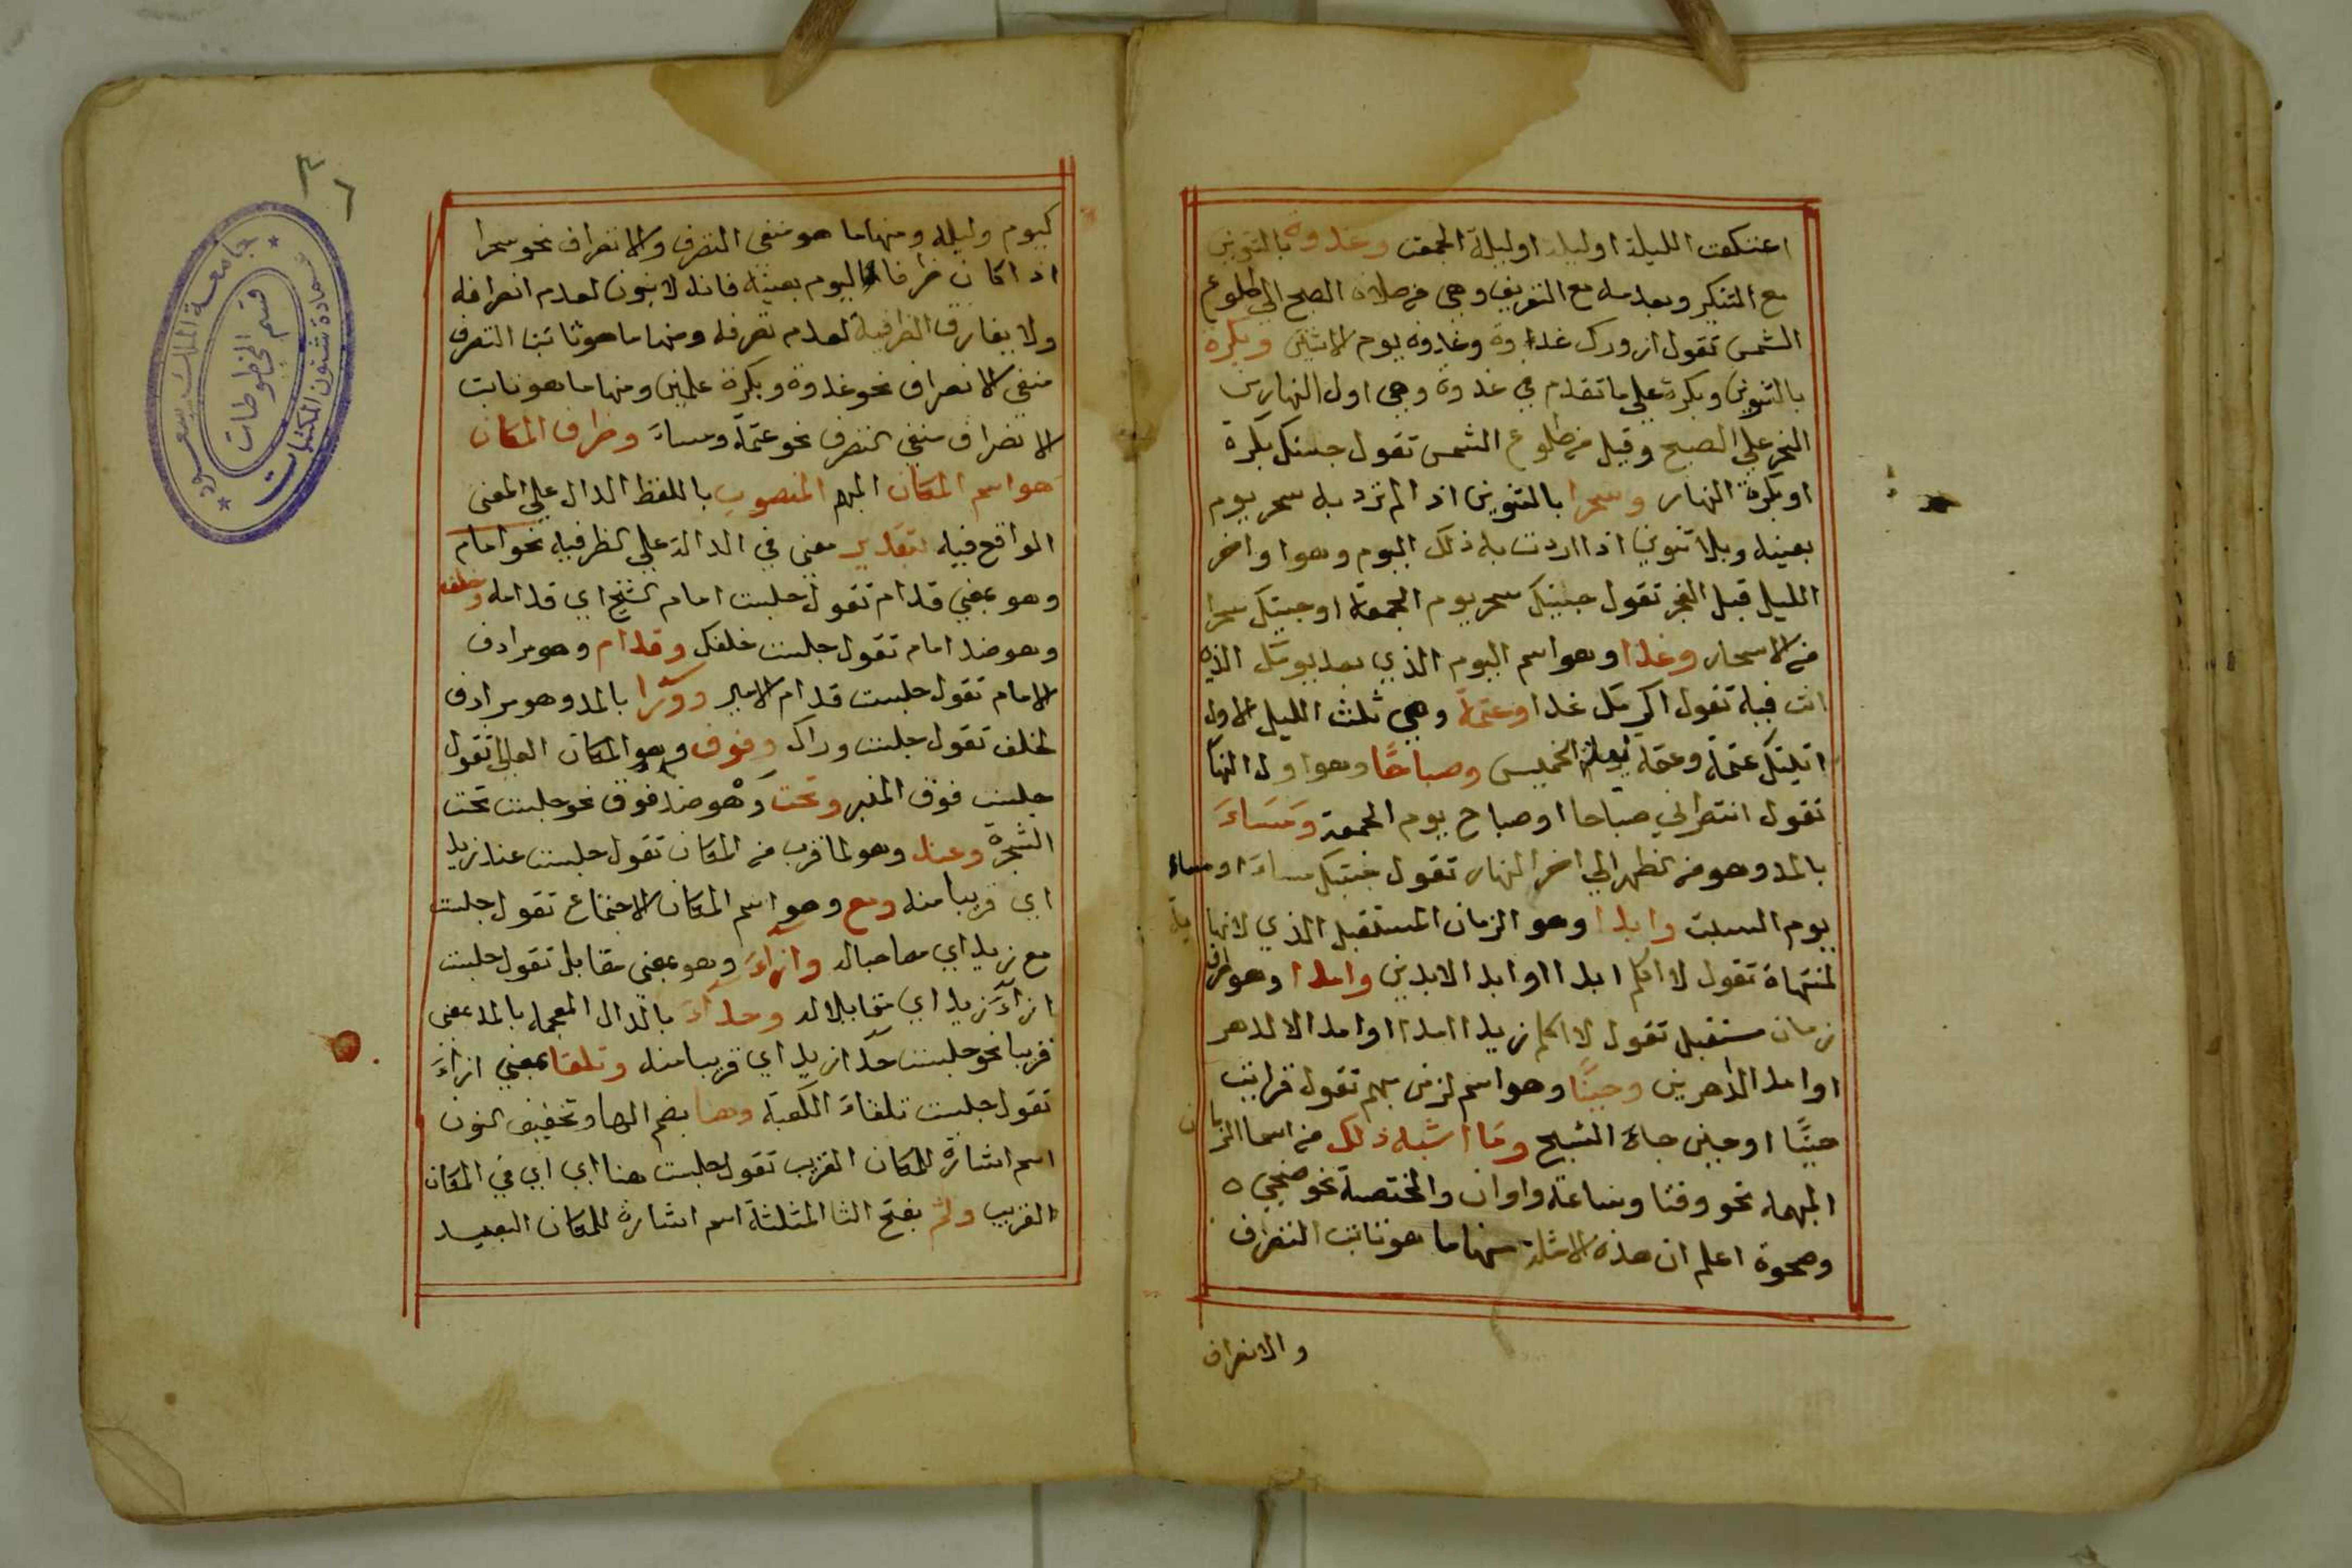 اعتكفت الليلة او ليلة او ليلة الجمعة وغدوة بالتنوين
مع التنكير وبعدمه مع التعريف وهي من صلاة الصبح الي طلوع
الشمس تقول ازورك غدوة وغدوة يوم الاثنين وبكرة
بالتنوين وبكرة علي ما تقدم في غدوة وهي اول النهار من
الفجر علي الصبح وقيل من طلوع الشمس تقول جئتك بكرة
او بكرة النهار وسحرا بالتنوين اذا لم ترد به سحر يوم
بعينه وبلا تنوين اذا اردت به ذلك اليوم وهو اواخر
الليل قبل الفجر تقول جيتك سحر يوم الجمعة او جيتك سحرا
من الاسحار وغدا وهو اسم اليوم الذي بعد يومك الذي
انت فيه تقول اكرمك غدا وعتمة وهي ثلث الليل الاول
اتيتك عتمة وعتمة ليلة الخميس وصباحًا وهو اول النها
تقول انتظرني صباحا او صباح يوم الجمعة ومَسَاءَ
بالمد وهو من الظهر الي اخر النهار تقول جيتك مساءَ او مساء
يوم السبت وابدا وهو الزمان المستقبل الذي لا نهاية
لمنتهاة تقول لا اكلم ابدا او ابد الابدين وامدا وهو ظرف
زمان مستقبل تقول لا اكلم زيدا امدا او امد الا الدهر
او امد الداهرين وحينًا وهو اسم لزمن مبهم تقول قرات
حينًا او حين جاءَ الشيخ وَمَا اشبه ذلك من اسما الزمان
المبهمه نحو وقتا وساعة واوان والمختصة نحو ضحي
وضحوة اعلم ان هذه الامثلة منها ما هو ثابت التصرف
والانصراف
٣٦
كيوم وليلة ومنها ما هو منفي التصرف والانصراف نحو سحرا
اذا كان ظرفا اليوم بعينه فانه لا ينون لعدم انصرافه
ولا يفارق الظرفية لعدم تصرفه ومنها ما هو ثابت التصرف
منفي الانصراف نحو غدوة وبكرة علمين ومنها ما هو ثابت
الانصراف منفي التصرف نحو عتمة ومساءَ وظرف المكان
هو اسم المكان المبهم المنصوب باللفظ الدال علي المعني
الواقع فيه بتقدير معني في الدالة علي الظرفية نحو امام
وهو بمعني قدام تقول جلست امام الشيخ اي قدامه وخلف
وهو ضد امام تقول جلست خلفك وقدام وهو مرادف
الامام تقول جلست قدام الامير وورآا بالمد وهو مرادف
لخلف تقول جلست وراك وفوق وهو المكان العالي تقول
جلست فوق المنبر وتحت وهو ضد فوق نحو جلست تحت
الشجرة وعند وهو لما قرب من المكان تقول جلست عند زيد
اي قريبا منه ومع وهو اسم المكان الاجتماع تقول جلست
مع زيد اي مصاحبا له وازاءَ وهو بمعني مقابل تقول جلست
ازآءَ زيد اي مقابلا له وحذآءَ بالذال المعجمة بالمد بمعني
قريبا نحو جلست حذآ زيد اي قريبا منه وتلقا بمعني ازاءَ
تقول جلست تلقاءَ الكعبة وهنا بضم الها وتخفيف النون
اسم اشارة للمكان القريب تقول جلست هنا اي اي في المكان
القريب وثَم بفتح الثا المثلثة اسم اشارة للمكان البعيد
جامعة الملك سعود
عمادة شئون المكتبات
قسم المخطوطات